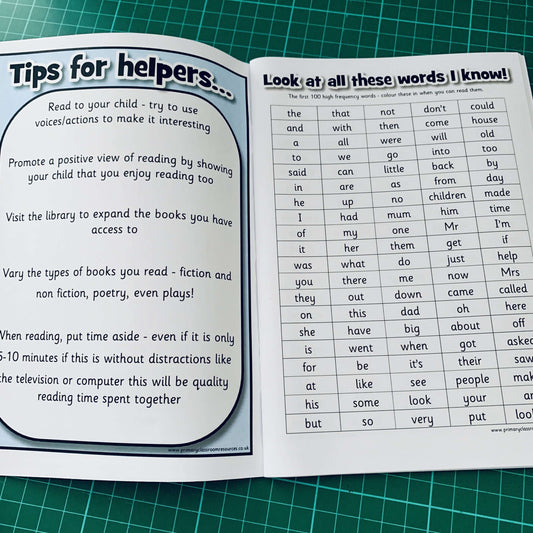 Tips for helpers...
Read to your child - try to use
voices/actions to make it interesting
Promote a positive view of reading by showing
your child that you enjoy reading too
Visit the library to expand the books you have
access to
Vary the types of books you read - fiction and
non fiction, poetry, even plays!
When reading, put time aside - even if it is only
5-10 minutes if this is without distractions like
the television or computer this will be quality
reading time spent together
www.primaryclassroomresources.co.uk
Look at all these words I know!
The first 100 high frequency words - colour these in when you can read them.
the that not don't could
and with then come house
a all were will old
to we go into too
said can little back by
in are as from day
he up no children made
I had mum him time
of my one Mr I'm
it her them get if
was what do just help
you there me now Mrs
they out down came called
on this dad oh here
she have big about off
is went when got asked
for be it's their saw
at like see people mak
his some look your an
but so very put look
www.primaryclassroomres